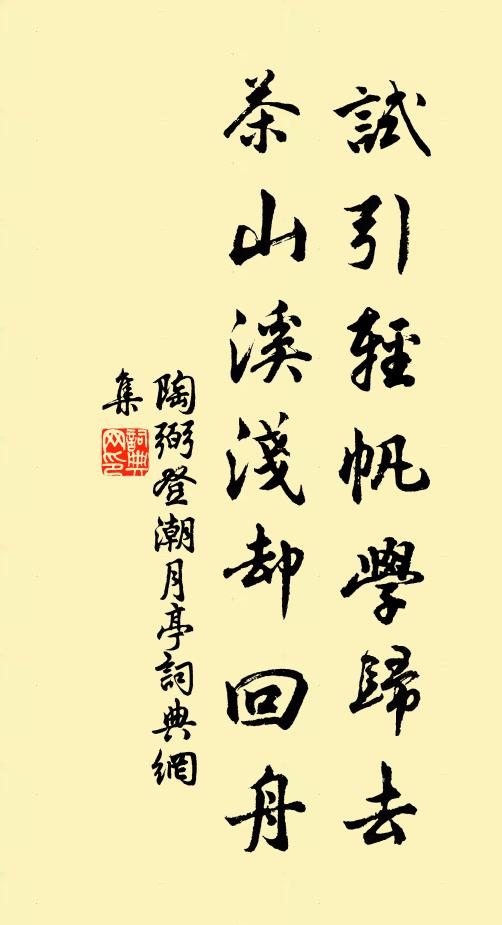 試引輕帆學歸去
茶山溪淺却回舟
陶弼登潮月亭詞典網
集
詞典网印